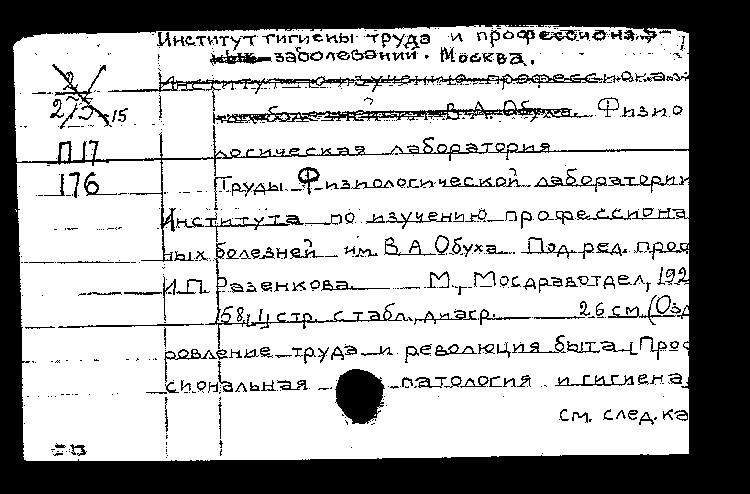 Институт гигиены труда и профессиональ-
ных заболеваний. Москва.
Институт по изучению профессионал
заболеваний им. В. А. Обуха. Физио
2
275-15
логическая лаборатория
П17
176
Труды Физиологической лаборатории
Института по изучению профессиона
ных болезней им. В. А. Обуха. Под ред. проф
И. П. Разенкова. М., Мосздравотдел, 192
168, стр. с табл., диагр. 26 см (Озд
ровление труда и революция быта. [Проф
сиональная патология и гигиена,
см. след. ка